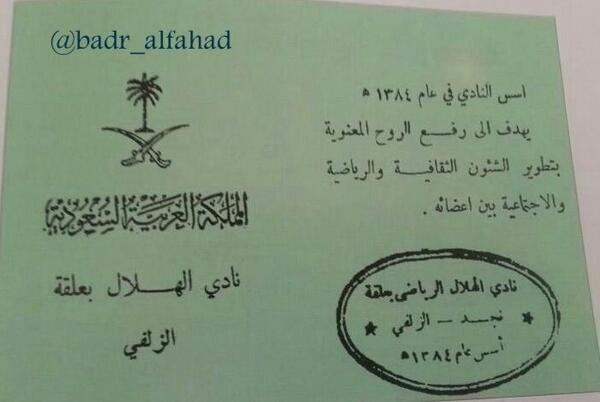 @badr_alfahad
المملكة العربية السعودية
نادي الهلال بعلقة
الزلفي
اسس النادي في عام ١٣٨٤ ه
يهدف الى رفع الروح المعنوية
بتطوير الشئون الثقافية والرياضية
والاجتماعية بين اعضائه .
نادي الهلال الرياضي بعلقة
نجد - الزلفي
أسس عام ١٣٨٤ ه